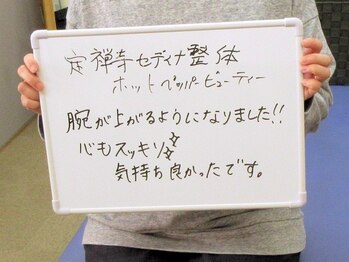 定禅寺セディナ整体
ホットペッパービューティー
腕が上がるようになりました!!
心もスッキリ✨
気持ち良かったです。